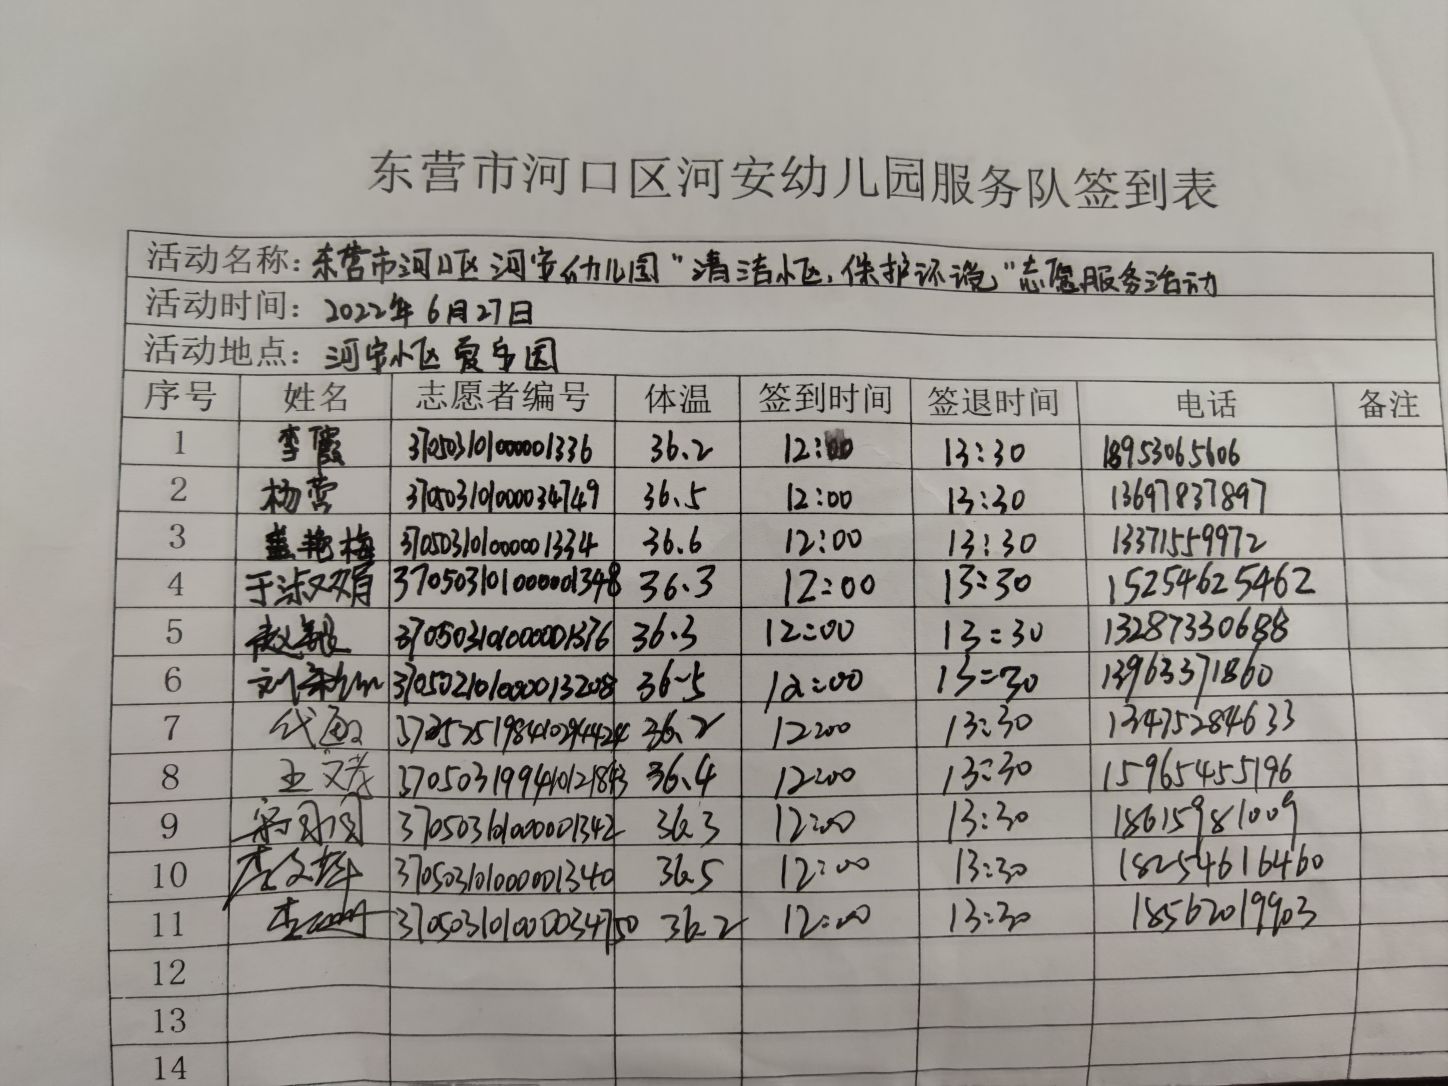 东营市河口区河安幼儿园服务队签到表
活动名称：东营市河口区河安幼儿园“清洁小区，保护环境”志愿服务活动
活动时间：2022年6月27日
活动地点：河安小区 爱乐园
序号 姓名 志愿者编号 体温 签到时间 签退时间 电话 备注
1 李霞 3705031010000001336 36.2 12:00 13:30 18953065606
2 杨营 370503101000034749 36.5 12:00 13:30 13697837897
3 盖艳梅 3705031010000001334 36.6 12:00 13:30 13371559972
4 于淑娟 370503101000001348 36.3 12:00 13:30 15254625462
5 赵敏 370503101000001376 36.3 12:00 13:30 13287330688
6 370502101000013208 36.5 12:00 13:30 13963371860
7 36.2 12:00 13:30 13475284633
8 36.4 12:00 13:30 15965455196
9 370503101000001342 36.3 12:00 13:30 18615981009
10 370503101000001340 36.5 12:00 13:30 18254616460
11 370503101000034750 36.2 12:00 13:30 18562019903
12
13
14